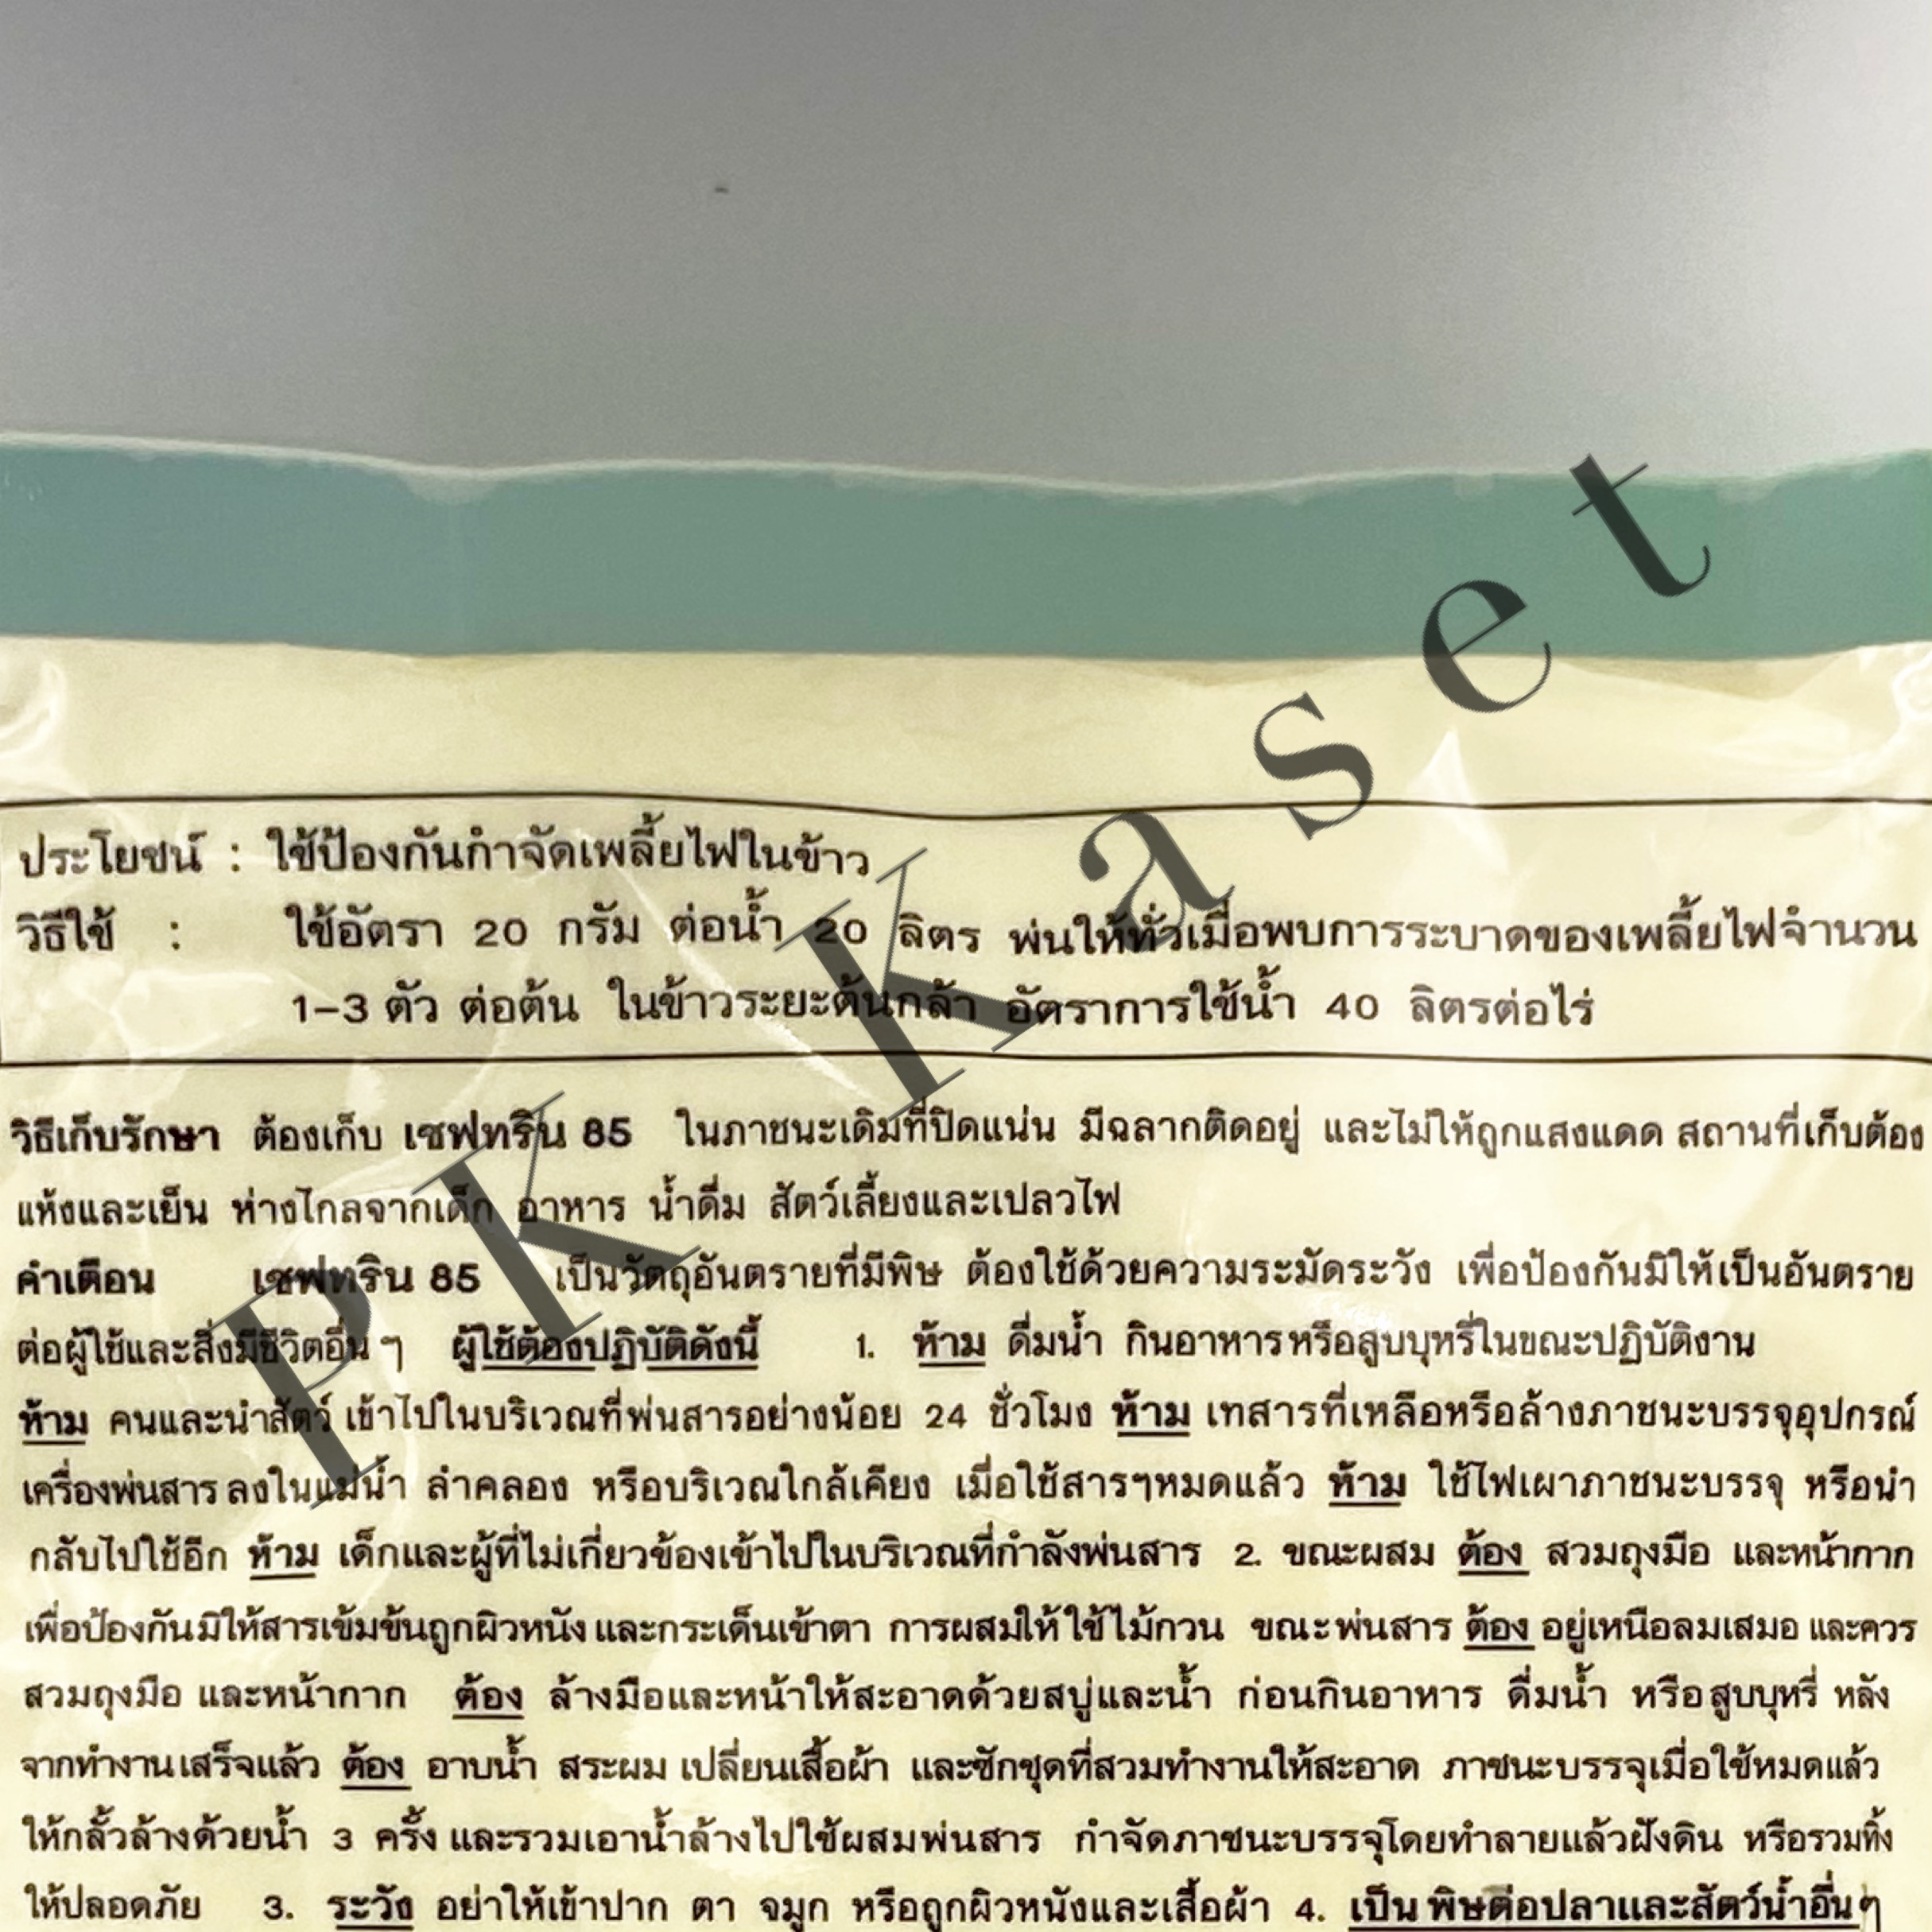 ประโยชน์ : ใช้ป้องกันกำจัดเพลี้ยไฟในข้าว
วิธีใช้ : ใช้อัตรา 20 กรัม ต่อน้ำ 20 ลิตร พ่นให้ทั่วเมื่อพบการระบาดของเพลี้ยไฟจำนวน
1-3 ตัว ต่อต้น ในข้าวระยะต้นกล้า อัตราการใช้น้ำ 40 ลิตรต่อไร่
วิธีเก็บรักษา ต้องเก็บ เซฟทริน 85 ในภาชนะเดิมที่ปิดแน่น มีฉลากติดอยู่ และไม่ให้ถูกแสงแดด สถานที่เก็บต้อง
แห้งและเย็น ห่างไกลจากเด็ก อาหาร น้ำดื่ม สัตว์เลี้ยงและเปลวไฟ
คำเตือน เซฟทริน 85 เป็นวัตถุอันตรายที่มีพิษ ต้องใช้ด้วยความระมัดระวัง เพื่อป้องกันมิให้เป็นอันตราย
ต่อผู้ใช้และสิ่งมีชีวิตอื่น ๆ ผู้ใช้ต้องปฏิบัติดังนี้ 1. ห้าม ดื่มน้ำ กินอาหารหรือสูบบุหรี่ในขณะปฏิบัติงาน
ห้าม คนและนำสัตว์ เข้าไปในบริเวณที่พ่นสารอย่างน้อย 24 ชั่วโมง ห้าม เทสารที่เหลือหรือล้างภาชนะบรรจุอุปกรณ์
เครื่องพ่นสาร ลงในแม่น้ำ ลำคลอง หรือบริเวณใกล้เคียง เมื่อใช้สารฯหมดแล้ว ห้าม ใช้ไฟเผาภาชนะบรรจุ หรือนำ
กลับไปใช้อีก ห้าม เด็กและผู้ที่ไม่เกี่ยวข้องเข้าไปในบริเวณที่กำลังพ่นสาร 2. ขณะผสม ต้อง สวมถุงมือ และหน้ากาก
เพื่อป้องกันมิให้สารเข้มข้นถูกผิวหนัง และกระเด็นเข้าตา การผสมให้ใช้ไม้กวน ขณะพ่นสาร ต้อง อยู่เหนือลมเสมอ และควร
สวมถุงมือ และหน้ากาก ต้อง ล้างมือและหน้าให้สะอาดด้วยสบู่และน้ำ ก่อนกินอาหาร ดื่มน้ำ หรือสูบบุหรี่ หลัง
จากทำงานเสร็จแล้ว ต้อง อาบน้ำ สระผม เปลี่ยนเสื้อผ้า และซักชุดที่สวมทำงานให้สะอาด ภาชนะบรรจุเมื่อใช้หมดแล้ว
ให้กลั้วล้างด้วยน้ำ 3 ครั้ง และรวมเอาน้ำล้างไปใช้ผสมพ่นสาร กำจัดภาชนะบรรจุโดยทำลายแล้วฝังดิน หรือรวมทิ้ง
ให้ปลอดภัย 3. ระวัง อย่าให้เข้าปาก ตา จมูก หรือถูกผิวหนังและเสื้อผ้า 4. เป็นพิษต่อปลาและสัตว์น้ำอื่นๆ
PK Kaset